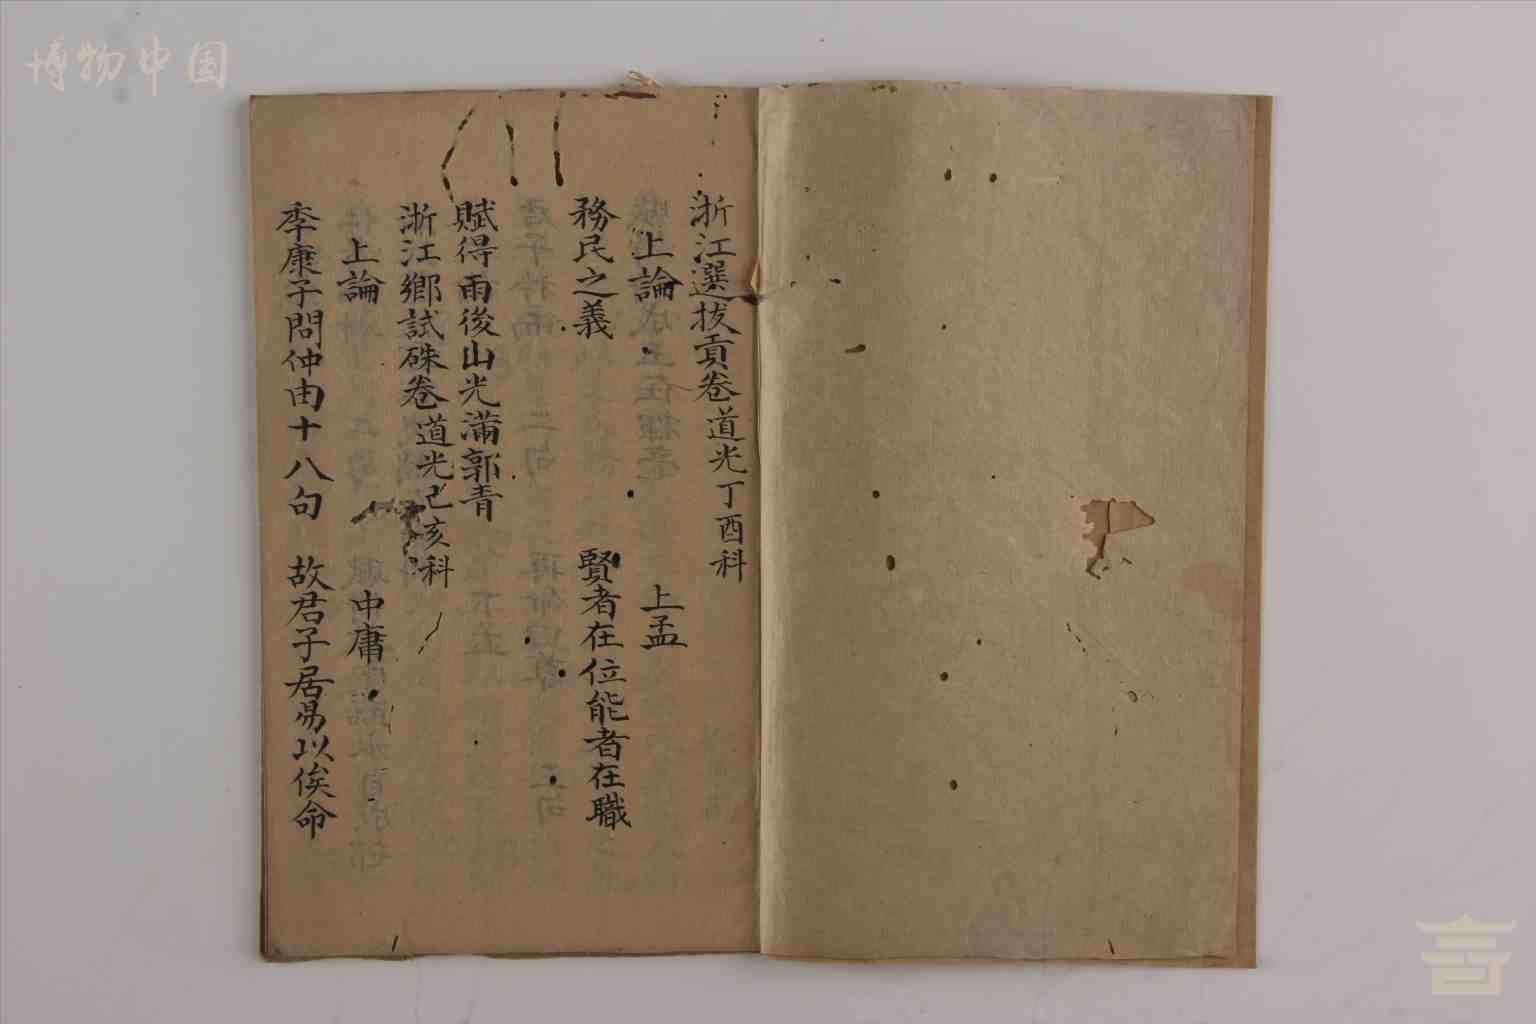 博物中国
浙江選拔貢卷道光丁酉科
上論 上孟
務民之義 賢者在位能者在職
賦得雨後山光滿郭青
浙江鄉試硃卷道光己亥科
上論 中庸
季康子問仲由十八句 故君子居易以俟命